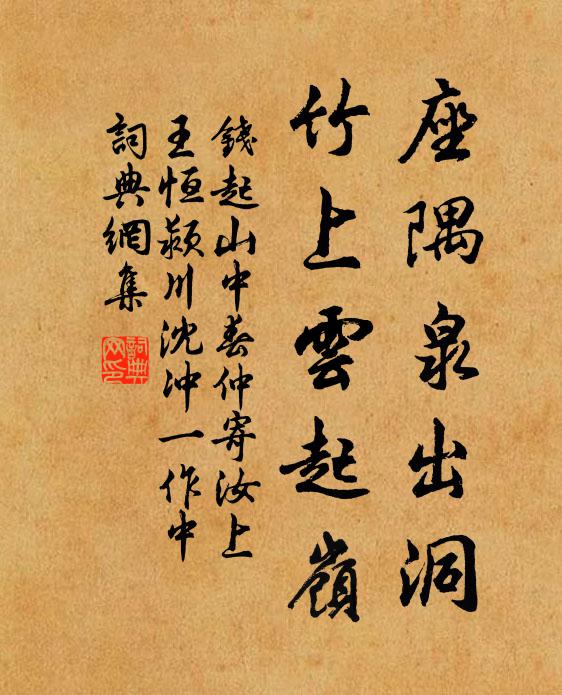 座隅泉出洞
竹上雲起嶺
錢起山中春仲寄汝上
王恒潁川沈冲一作中
詞典網集
詞典網印